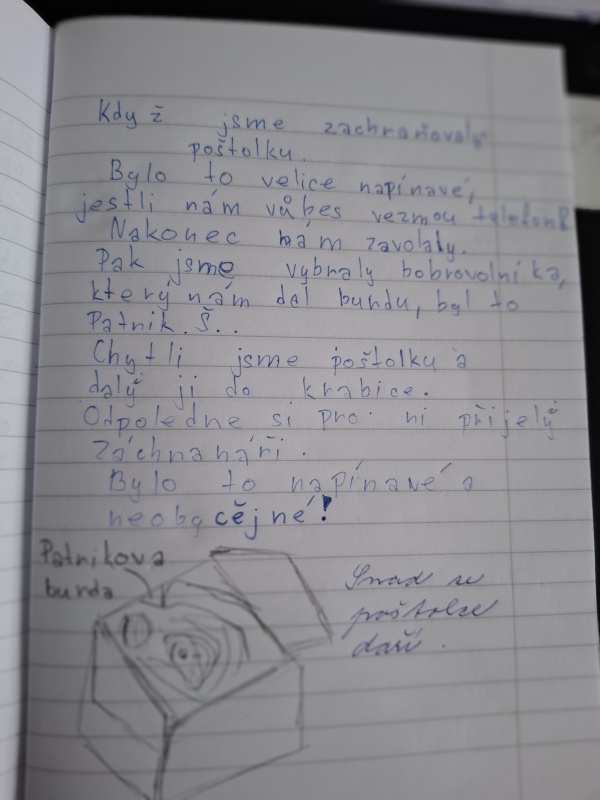 Když jsme zachraňovaly
poštolku.
Bylo to velice napínavé,
jestli nám vůbes vezmou telefon?
Nakonec nám zavolaly.
Pak jsme vybraly bobrovolníka,
který nám dal bundu, byl to
Patnik. Š..
Chytli jsme poštolku a
dalÿ ji do krabice.
Odpoledne si pro ni přijelÿ
Záchnanáři.
Bylo to napínavé a
neobyčějné!
Patnikova
bunda
Snad se
poštolce
daří.